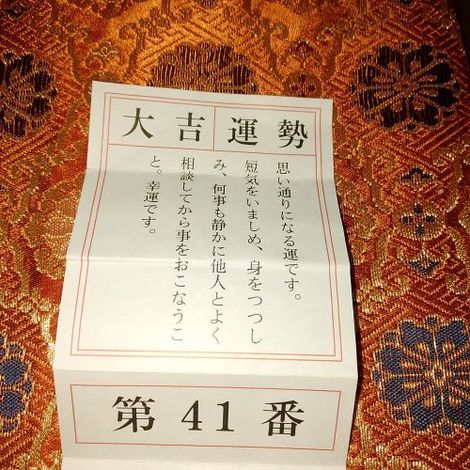 大吉運勢
思い通りになる運です。
短気をいましめ、身をつつし
み、何事も静かに他人とよく
相談してから事をおこなうこ
と。幸運です。
第 41 番